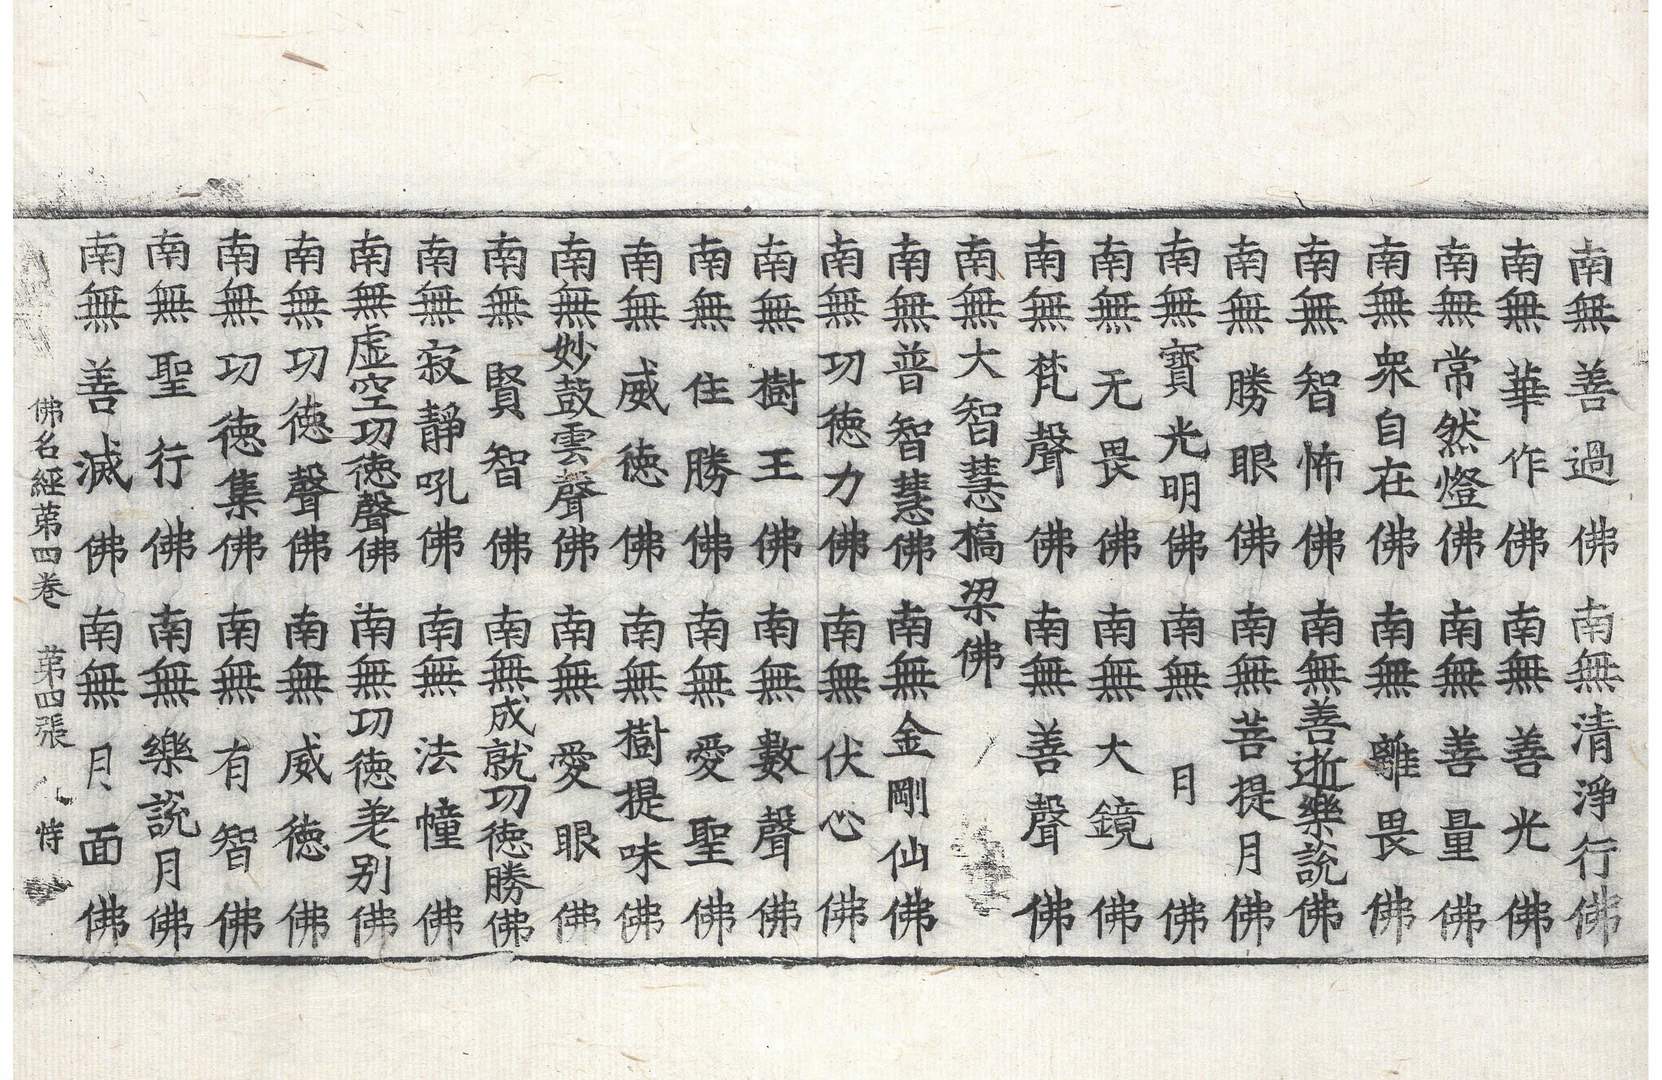 南無善過佛 南無清淨行佛
南無華作佛 南無善光佛
南無常然燈佛 南無善量佛
南無衆自在佛 南無離畏佛
南無智怖佛 南無善逝樂說佛
南無勝眼佛 南無菩提月佛
南無寶光明佛 南無月佛
南無无畏佛 南無大鏡佛
南無梵聲佛 南無善聲佛
南無大智慧槗梁佛
南無普智慧佛 南無金剛仙佛
南無功德力佛 南無伏心佛
南無樹王佛 南無數聲佛
南無住勝佛 南無愛聖佛
南無威德佛 南無樹提味佛
南無妙鼓雲聲佛 南無愛眼佛
南無賢智佛 南無成就功德勝佛
南無寂靜吼佛 南無法幢佛
南無虛空功德聲佛 南無功德差别佛
南無功德聲佛 南無威德佛
南無功德集佛 南無有智佛
南無聖行佛 南無樂說月佛
南無善滅佛 南無月面佛
佛名經苐四卷 苐四張 恃